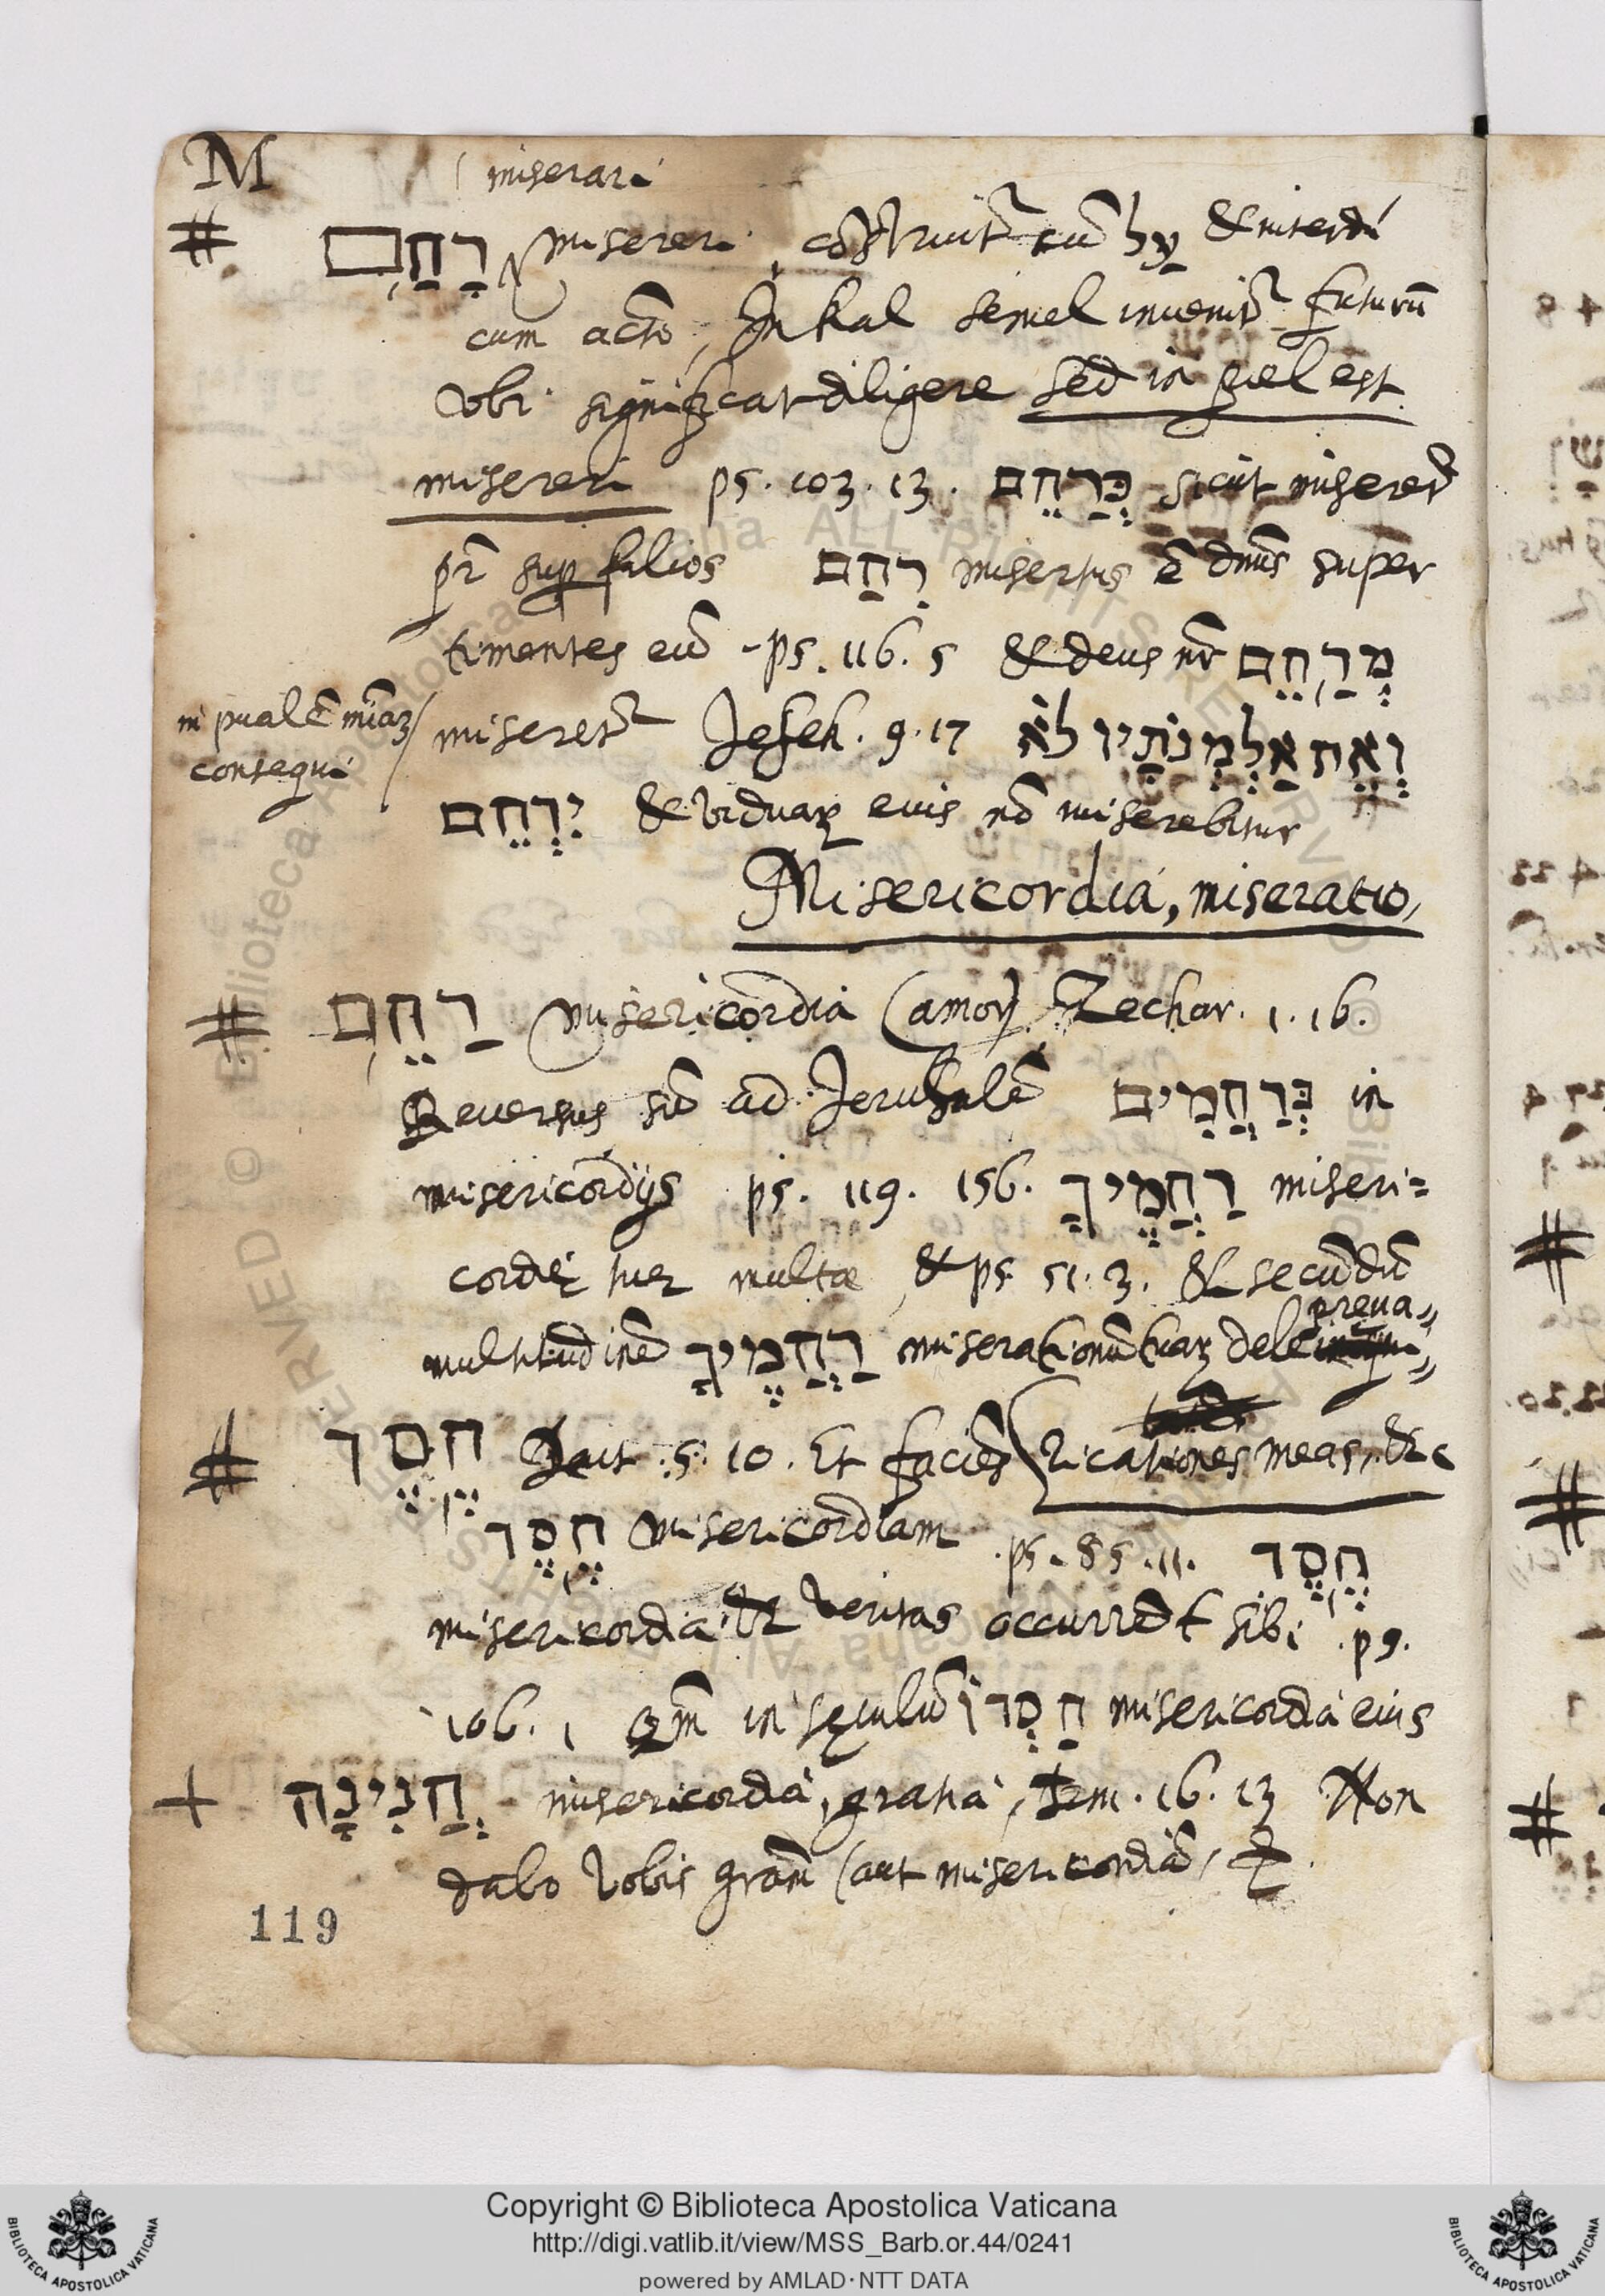 M
( miserari
# רָחַם misereri, cōstruit᷑ cū עַל & interdū
cum actō, In kal semel inuenit᷑ futurū
vbi significat diligere sed in piel est
misereri ps. 103. 13. כְּרַחֵם sicut miseret᷑
pr̄ sup filios רִחַם misertus ē dn̄s super
timentes eū - ps. 116. 5 & deus nr̄ מְרַחֵם
in pual ē mīaȝ
consequi
miseret᷑ Jesch. 9. 17 וְאֶת אַלְמְנֹתָיו לֹא
יְרַחֵם & viduaȝ eius nō miserebitur
Misericordia, miseratio,
# רַחֵם misericordia (amor) Zechar. 1. 16.
Reuersus sū ad Jerusalē בְּרַחֲמִים in
misericordijs ps. 119. 156. רַחֲמֶיךָ miseri=
cordię tuę multæ, & ps 51. 3. & secūdū
multitudinē רַחֲמֶיךָ miserationū tuaȝ dele
preua„
# חֶסֶד 5. 10. Et faciēs ricationes meas, &c
חֶסֶד misericordiam ps. 85. 11. חֶסֶד
misericordia & veritas occurrēt sibi ps.
106. 1 Qm̄ in sęculū חַסְדּוֹ misericordia eius
+ חֲנִינָה misericordia, gratia, Jem. 16. 13 Non
dabo vobis grām (aut misericordiā,
119
Copyright © Biblioteca Apostolica Vaticana
http://digi.vatlib.it/view/MSS_Barb.or.44/0241
powered by AMLAD·NTT DATA
BIBLIOTECA APOSTOLICA VATICANA
BIBLIOTECA APOSTOLICA VATICANA